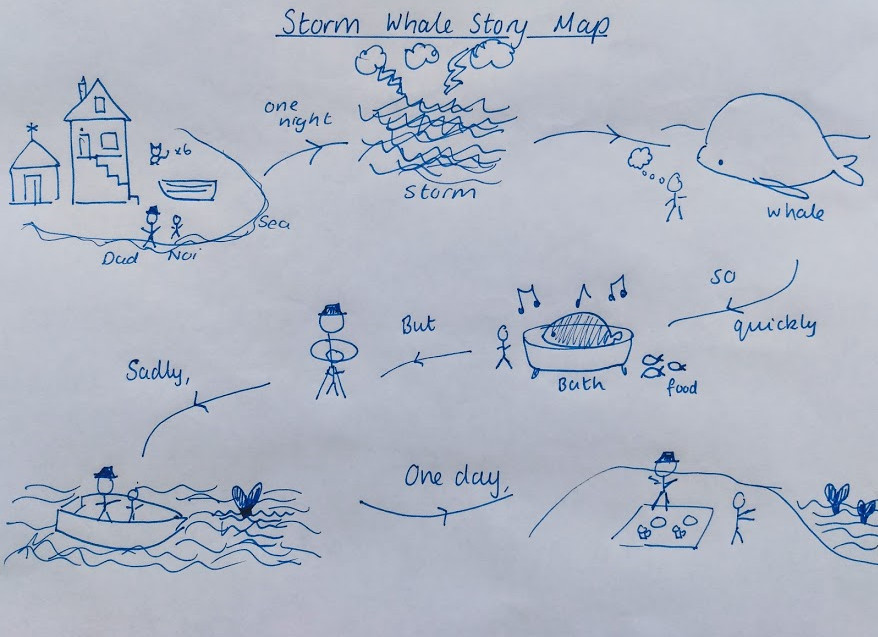 Storm Whale Story Map
one
night
x6
storm
Sea
Dad Noi
whale
so
quickly
But
Bath
food
Sadly,
One day,